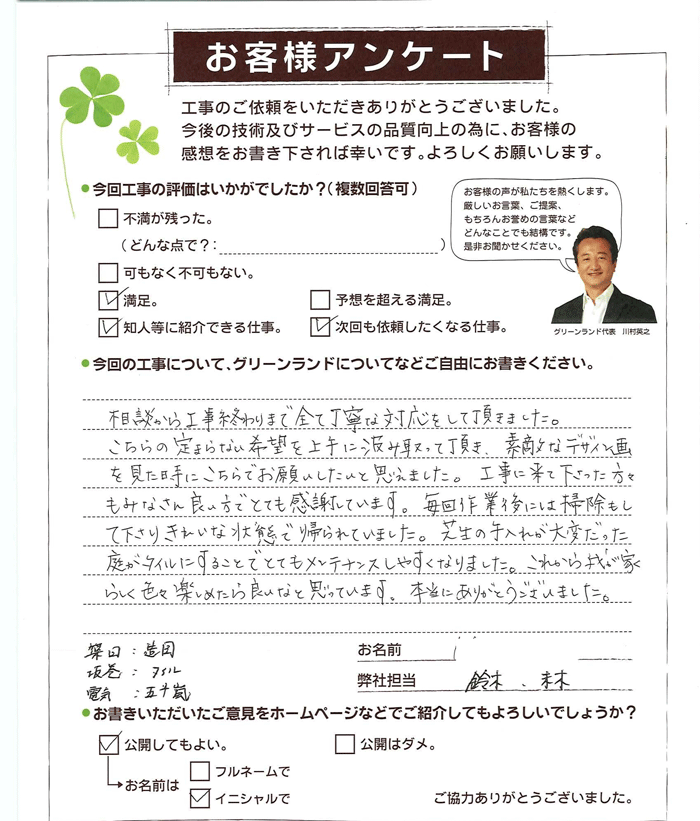 お客様アンケート
工事のご依頼をいただきありがとうございました。
今後の技術及びサービスの品質向上の為に、お客様の
感想をお書き下されば幸いです。よろしくお願いします。
●今回工事の評価はいかがでしたか?(複数回答可)
不満が残った。
(どんな点で?: )
可もなく不可もない。
満足。 予想を超える満足。
知人等に紹介できる仕事。 次回も依頼したくなる仕事。
お客様の声が私たちを熱くします。
厳しいお言葉、ご提案、
もちろんお誉めの言葉など
どんなことでも結構です。
是非お聞かせください。
グリーンランド代表 川村英之
●今回の工事について、グリーンランドについてなどご自由にお書きください。
相談から工事終わりまで全て丁寧な対応をして頂きました。
こちらの定まらない希望を上手に汲み取って頂き、素敵なデザイン画
を見た時にこちらでお願いしたいと思えました。工事に来て下さった方々
もみなさん良い方でとても感謝しています。毎回作業後には掃除もし
て下さりきれいな状態で帰られていました。芝生の手入れが大変だった
庭がタイルにすることでとてもメンテナンスしやすくなりました。これから我が家
らしく色々楽しめたら良いなと思っています。本当にありがとうございました。
築田:造園
坂巻:タイル
電気:五十嵐
お名前
弊社担当 鈴木、
●お書きいただいたご意見をホームページなどでご紹介してもよろしいでしょうか?
公開してもよい。 公開はダメ。
お名前は フルネームで
イニシャルで
ご協力ありがとうございました。